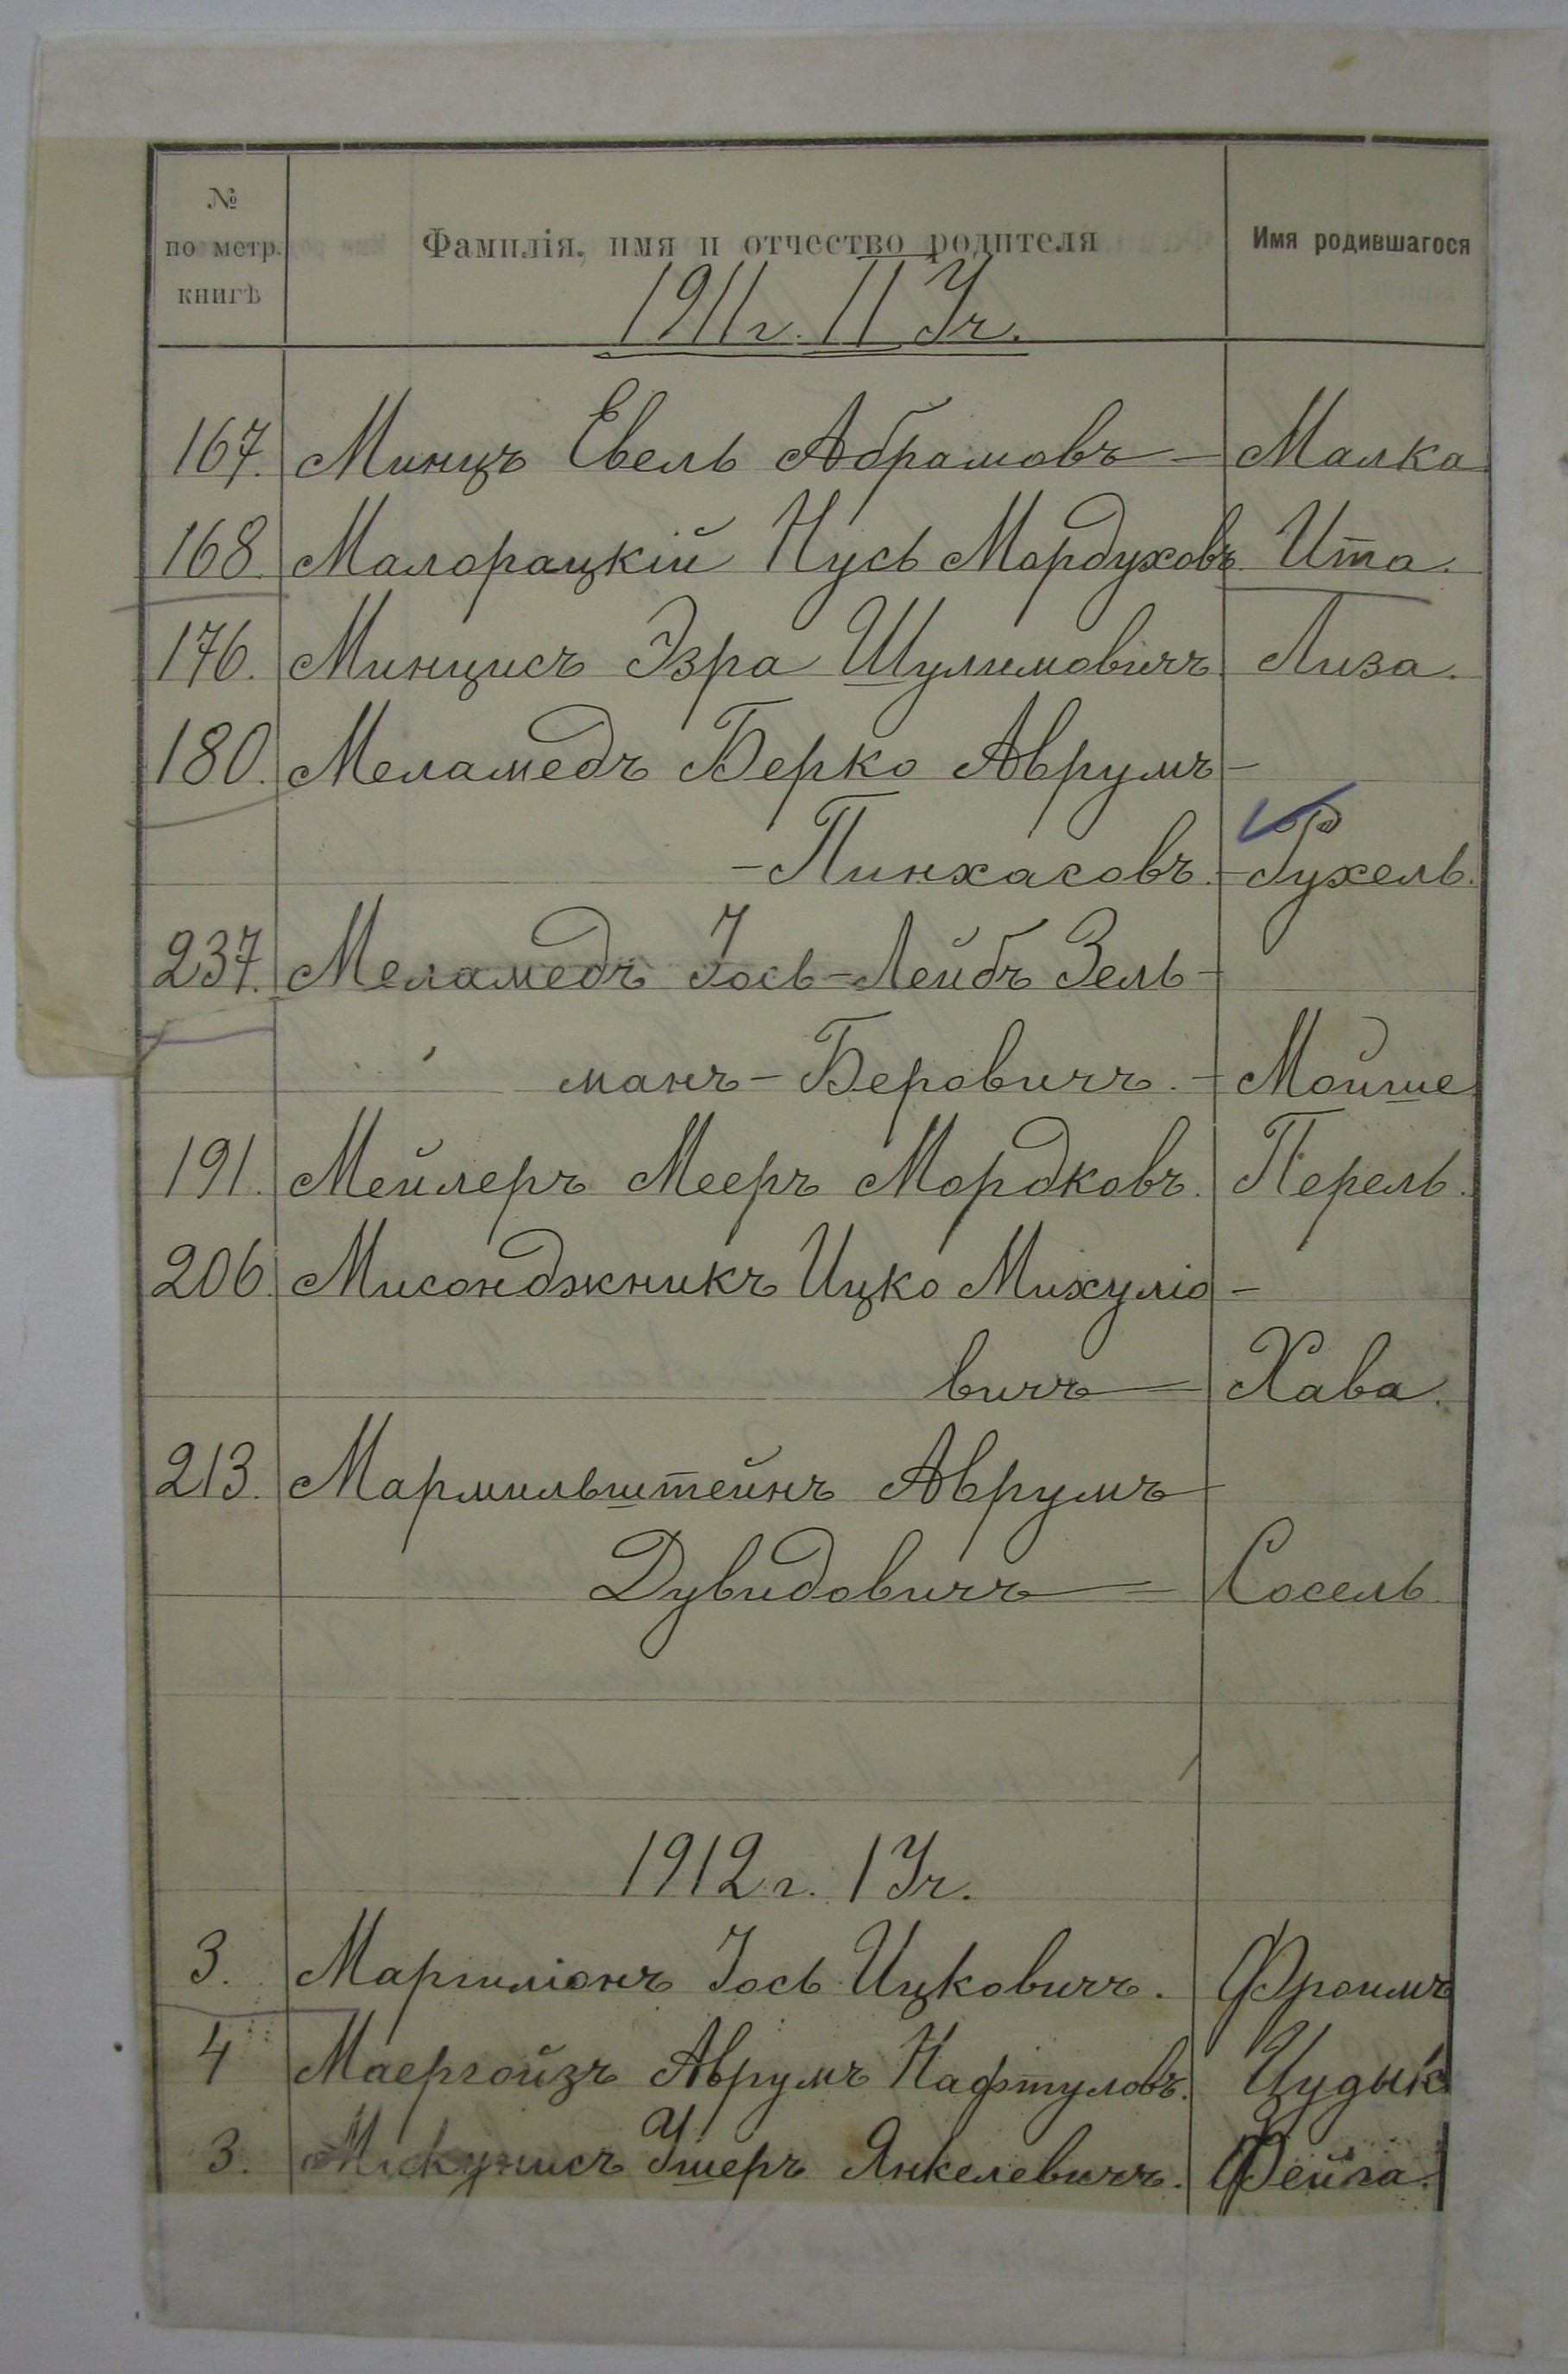 № по метр. книгѣ Фамилія, имя и отчество родителя Имя родившагося
1911 г. II Уч.
167. Минцъ Евель Абрамовъ - Малка
168. Малорацкій Нусь Мордуховъ Ита.
176. Минцисъ Эзра Шулимовичъ Лиза.
180. Меламедъ Берко Аврумъ-
-Пинхасовъ. - Рухель.
237. Меламедъ Іось-Лейбъ Зель-
манъ-Беровичъ. - Мойше
191. Мейлеръ Мееръ Мордковъ. Перель.
206. Мисонджникъ Ицко Михуліо-
вичъ - Хава.
213. Мармильштейнъ Аврумъ
Дувидовичъ - Сосель
1912 г. I Уч.
3. Маргиліонъ Іось Ицковичъ. Фроимъ
4 Маергойзъ Аврумъ Нафтуловъ. Цудык
3. Микунисъ Ушеръ Янкелевичъ. Фейга.